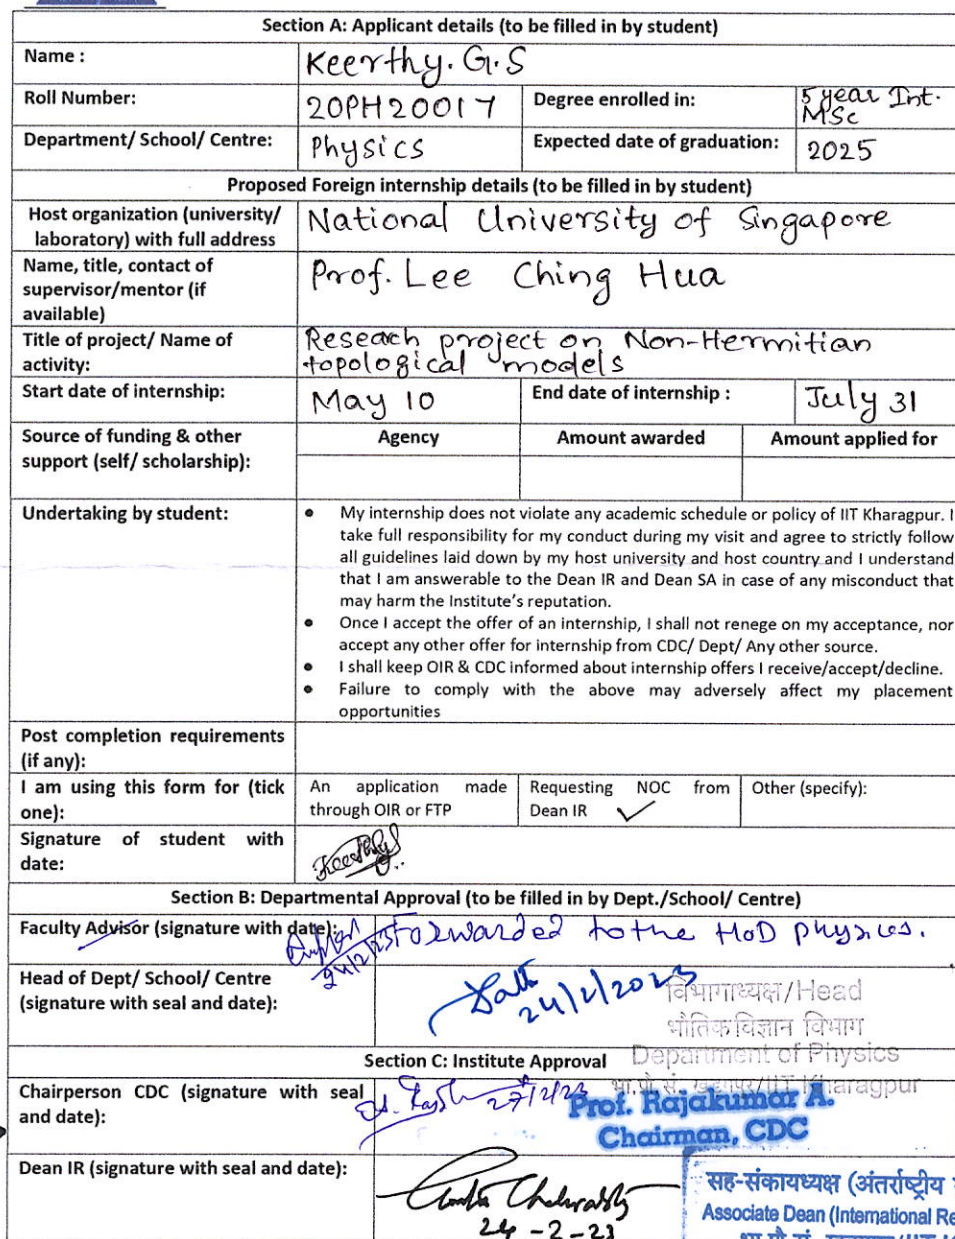 Section A: Applicant details (to be filled in by student)
Name :
Keerthy. G.S
Roll Number:
20PH20017
Degree enrolled in:
5 year Int.
MSc
Department/ School/ Centre:
Physics
Expected date of graduation:
2025
Proposed Foreign internship details (to be filled in by student)
Host organization (university/
laboratory) with full address
National University of Singapore
Name, title, contact of
supervisor/mentor (if
available)
Prof. Lee Ching Hua
Title of project/ Name of
activity:
Reseach project on Non-Hermitian
topological models
Start date of internship:
May 10
End date of internship :
July 31
Source of funding & other
support (self/ scholarship):
Agency
Amount awarded
Amount applied for
Undertaking by student:
• My internship does not violate any academic schedule or policy of IIT Kharagpur. I
take full responsibility for my conduct during my visit and agree to strictly follow
all guidelines laid down by my host university and host country and I understand
that I am answerable to the Dean IR and Dean SA in case of any misconduct that
may harm the Institute's reputation.
• Once I accept the offer of an internship, I shall not renege on my acceptance, nor
accept any other offer for internship from CDC/ Dept/ Any other source.
• I shall keep OIR & CDC informed about internship offers I receive/accept/decline.
• Failure to comply with the above may adversely affect my placement
opportunities
Post completion requirements
(if any):
I am using this form for (tick
one):
An application made
through OIR or FTP
Requesting NOC from
Dean IR ✓
Other (specify):
Signature of student with
date:
Keerthy
Section B: Departmental Approval (to be filled in by Dept./School/ Centre)
Faculty Advisor (signature with date):
24/2/23
Forwarded to the HoD physics.
Head of Dept/ School/ Centre
(signature with seal and date):
24/2/2023
विभागाध्यक्ष/Head
भौतिक विज्ञान विभाग
Department of Physics
भा.प्रौ.सं. खड़गपुर/IIT Kharagpur
Section C: Institute Approval
Chairperson CDC (signature with seal
and date):
27/2/23
Prof. Rajakumar A.
Chairman, CDC
Dean IR (signature with seal and date):
24-2-23
सह-संकायध्यक्ष (अंतर्राष्ट्रीय
Associate Dean (International Re